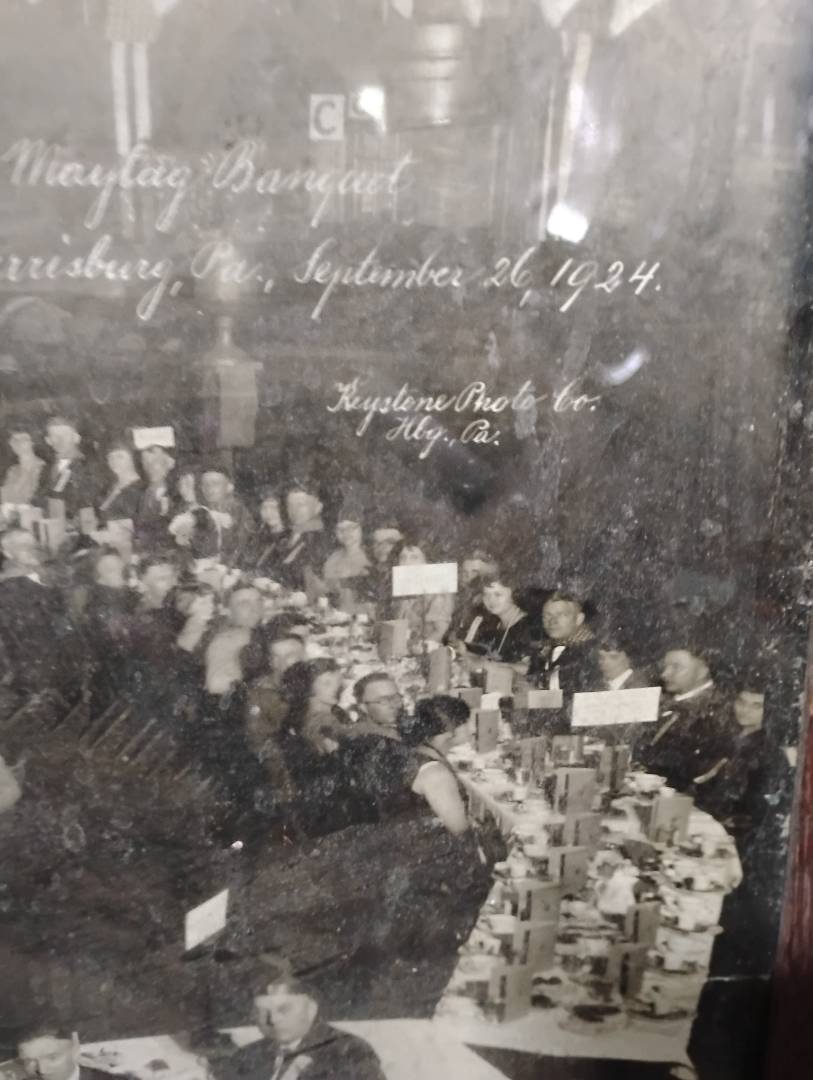 C
Maytag Banquet
rrisburg, Pa., September 26, 1924.
Keystone Photo Co.
Hbg., Pa.